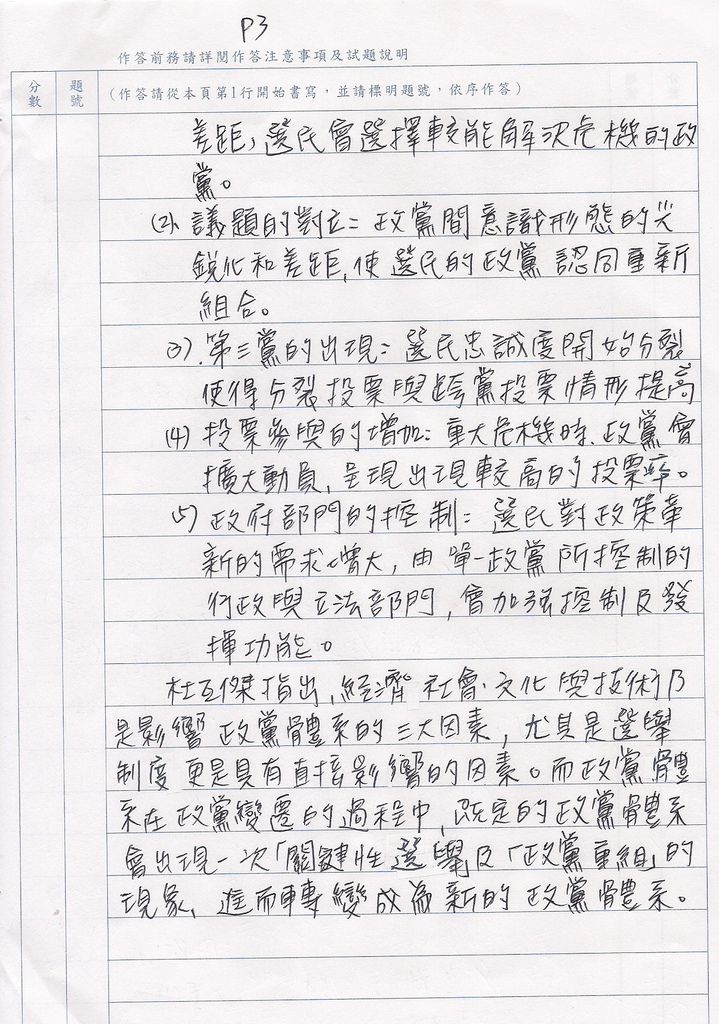 P3
作答前務請詳閱作答注意事項及試題說明
分數
題號
(作答請從本頁第1行開始書寫，並請標明題號，依序作答)
差距，選民會選擇較能解決危機的政
黨。
(2) 議題的對立：政黨間意識形態的尖
銳化和差距，使選民的政黨認同重新
組合。
(3) 第三黨的出現：選民忠誠度開始分裂
使得分裂投票與跨黨投票情形提高
(4) 投票參與的增加：重大危機時，政黨會
擴大動員，呈現出現較高的投票率。
(5) 政府部門的控制：選民對政策革
新的需求增大，由單一政黨所控制的
行政與立法部門，會加強控制及發
揮功能。
杜瓦傑指出，經濟社會、文化與技術乃
是影響政黨體系的三大因素，尤其是選舉
制度更是具有直接影響的因素。而政黨體
系在政黨變遷的過程中，既定的政黨體系
會出現一次「關鍵性選舉」及「政黨重組」的
現象，進而轉變成為新的政黨體系。